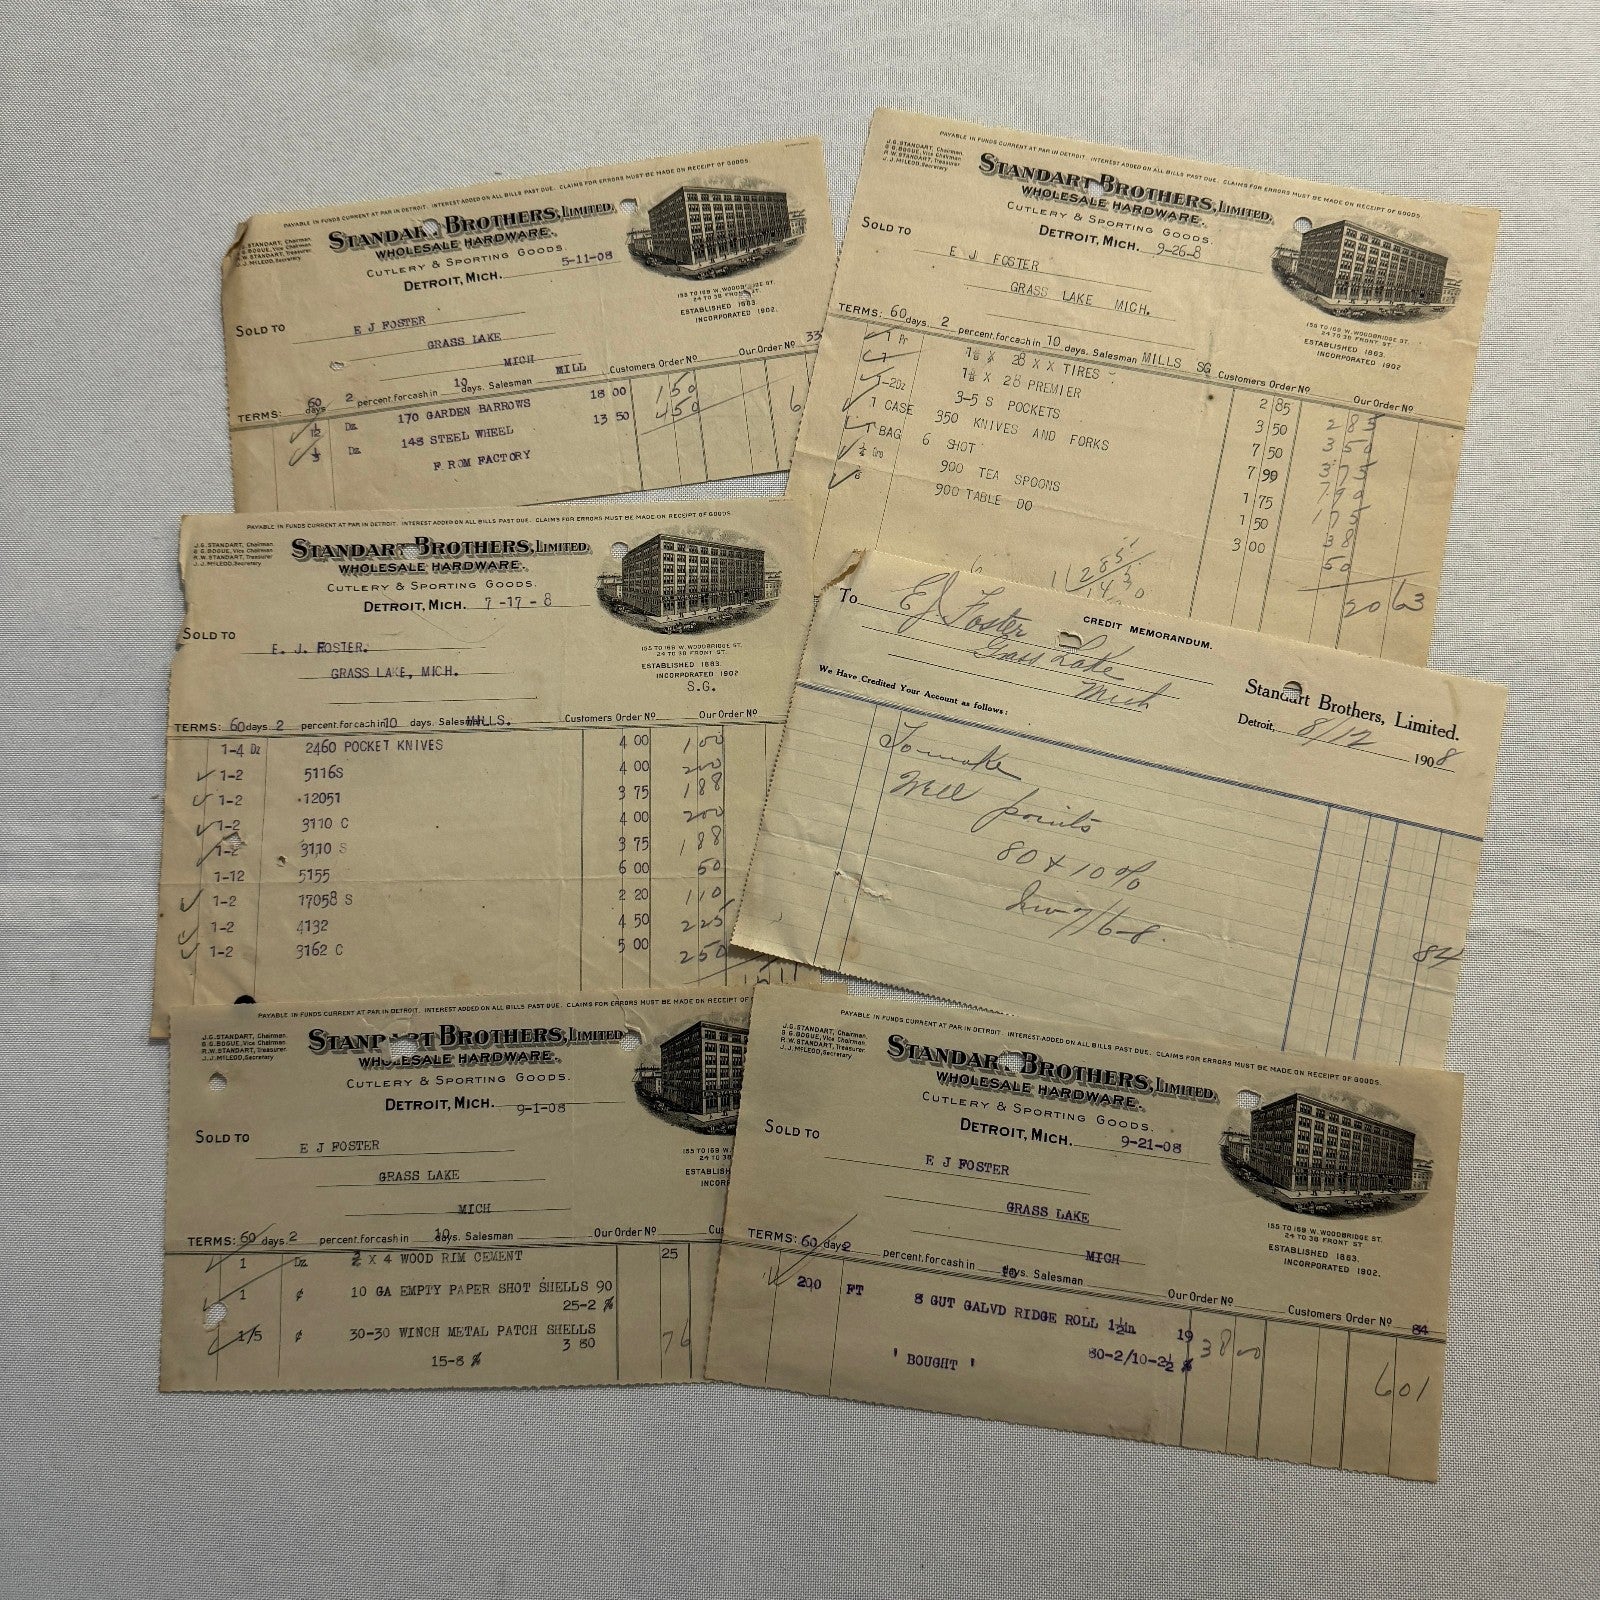 PAYABLE IN FUNDS CURRENT AT PAR IN DETROIT. INTEREST ADDED ON ALL BILLS PAST DUE. CLAIMS FOR ERRORS MUST BE MADE ON RECEIPT OF GOODS.
STANDART, Chairman.
BOGUE, Vice Chairman
W STANDART, Treasurer
J. J. McLEOD, Secretary
STANDAR BROTHERS, LIMITED.
WHOLESALE HARDWARE.
CUTLERY & SPORTING GOODS.
DETROIT, MICH. 5-11-08
155 TO 169 W. WOODBRIDGE ST.
24 TO 38 FRONT ST.
ESTABLISHED 1883.
INCORPORATED 1902.
SOLD TO E J FOSTER
GRASS LAKE
MICH
TERMS: 60 days 2 percent.for cash in 10 days. Salesman MILL Customers Order No Our Order No 33
1/12 Dz 170 GARDEN BARROWS 18 00 150
1/3 Dz 148 STEEL WHEEL 13 50 450 6
FROM FACTORY
PAYABLE IN FUNDS CURRENT AT PAR IN DETROIT. INTEREST ADDED ON ALL BILLS PAST DUE. CLAIMS FOR ERRORS MUST BE MADE ON RECEIPT OF GOODS.
J.G. STANDART, Chairman.
G G. BOGUE, Vice Chairman
R.W. STANDART, Treasurer
J. J. McLEOD, Secretary
STANDART BROTHERS, LIMITED.
WHOLESALE HARDWARE.
CUTLERY & SPORTING GOODS.
DETROIT, MICH. 9-26-8
155 TO 169 W. WOODBRIDGE ST.
24 TO 38 FRONT ST.
ESTABLISHED 1883.
INCORPORATED 1902
SOLD TO E J FOSTER
GRASS LAKE MICH.
TERMS: 60 days 2 percent.for cash in 10 days. Salesman MILLS SG Customers Order No Our Order No
1 Pr 1½ X 28 X X TIRES 2 85 285
1 1½ X 28 PREMIER 3 50 350
1-2Dz 3-5 S POCKETS 7 50 375
1 CASE 350 KNIVES AND FORKS 7 99
1 BAG 6 SHOT 1 75 175
¼ Gro 900 TEA SPOONS 1 50 38
6 900 TABLE DO 3 00 50
285
1430
20 63
PAYABLE IN FUNDS CURRENT AT PAR IN DETROIT. INTEREST ADDED ON ALL BILLS PAST DUE. CLAIMS FOR ERRORS MUST BE MADE ON RECEIPT OF GOODS.
J.G. STANDART, Chairman.
G G. BOGUE, Vice Chairman
R.W. STANDART, Treasurer
J. J. McLEOD, Secretary
STANDART BROTHERS, LIMITED.
WHOLESALE HARDWARE.
CUTLERY & SPORTING GOODS.
DETROIT, MICH. 7-17-8
155 TO 169 W. WOODBRIDGE ST.
24 TO 38 FRONT ST.
ESTABLISHED 1883.
INCORPORATED 1902
S.G.
SOLD TO
E. J. FOSTER.
GRASS LAKE, MICH.
TERMS: 60 days 2 percent.for cash in 10 days. Salesman MILLS. Customers Order No Our Order No
1-4 Dz 2460 POCKET KNIVES 4 00 100
1-2 5116S 4 00 200
1-2 12051 3 75 188
1-2 3110 C 4 00 200
1-2 3110 S 3 75 188
1-12 5155 6 00 50
1-2 17058 S 2 20 110
1-2 4132 4 50 225
1-2 3162 C 5 00 250
CREDIT MEMORANDUM.
To E J Foster
Grass Lake
Mich
Standart Brothers, Limited.
Detroit, 8/12 1908
We Have Credited Your Account as follows:
To make
Well points
80 & 10%
Inv 7/16-8.
84
PAYABLE IN FUNDS CURRENT AT PAR IN DETROIT. INTEREST ADDED ON ALL BILLS PAST DUE. CLAIMS FOR ERRORS MUST BE MADE ON RECEIPT OF
J.G. STANDART, Chairman.
G G. BOGUE, Vice Chairman
R.W. STANDART, Treasurer
J. J. McLEOD, Secretary
STANDART BROTHERS, LIMITED
WHOLESALE HARDWARE.
CUTLERY & SPORTING GOODS.
DETROIT, MICH. 9-1-08
155 TO 169 W.
24 TO 38
ESTABLISH
INCORP
SOLD TO E J FOSTER
GRASS LAKE
MICH
TERMS: 60 days 2 percent.for cash in 10 days. Salesman Our Order No Cus
1 Dz 2 X 4 WOOD RIM CEMENT 25
1 ¢ 10 GA EMPTY PAPER SHOT SHELLS 90
25-2 %
1/5 ¢ 30-30 WINCH METAL PATCH SHELLS
3 80 76
15-8 %
PAYABLE IN FUNDS CURRENT AT PAR IN DETROIT. INTEREST ADDED ON ALL BILLS PAST DUE. CLAIMS FOR ERRORS MUST BE MADE ON RECEIPT OF GOODS.
J.G. STANDART, Chairman.
G G. BOGUE, Vice Chairman
R.W. STANDART, Treasurer
J. J. McLEOD, Secretary
STANDAR BROTHERS, LIMITED.
WHOLESALE HARDWARE.
CUTLERY & SPORTING GOODS.
DETROIT, MICH. 9-21-08
155 TO 169 W. WOODBRIDGE ST.
24 TO 38 FRONT ST
ESTABLISHED 1883.
INCORPORATED 1902.
SOLD TO E J FOSTER
GRASS LAKE
MICH
TERMS: 60 days 2 percent.for cash in days. Salesman Our Order No Customers Order No 84
200 FT 8 GUT GALVD RIDGE ROLL 1½in 19 38 00
80-2/10-2½ %
' BOUGHT '
601